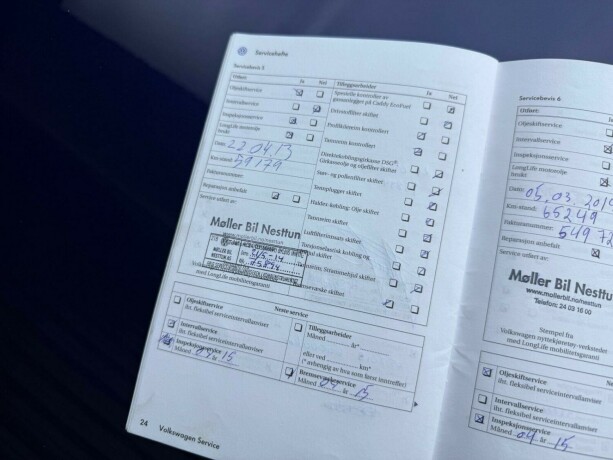 Servicehefte
Servicebevis 5
Utført: Ja Nei
Oljeskiftservice
Intervallservice
Inspeksjonsservice
LongLife motorolje
brukt:
Dato: 22 04 13
Km-stand: 59179
Fakturanummer:
Reparasjon anbefalt
Service utført av:
Møller Bil Nesttun
MØLLER BIL
NESTTUN AS
Volkswagen
med LongLife mobilitetsgaranti
Tilleggsarbeider Ja Nei
Spesielle kontroller av
gassanlegget på Caddy EcoFuel
Drivstoffilter skiftet
Profilkilerem kontrollert
Tannrem kontrollert
Direktekoblingsgirkasse DSG®:
Girkasseolje og oljefilter skiftet
Støv- og pollenfilter skiftet
Tennplugger skiftet
Haldex-kobling: Olje skiftet
Tannrem skiftet
Luftfilterinnsats skiftet
Tannrem, strammehjul skiftet
Bremsevæske skiftet
Neste service
Oljeskiftservice
iht. fleksibel serviceintervallanviser
Intervallservice
iht. fleksibel serviceintervallanviser
Inspeksjonsservice
Måned 04 år 15
Tilleggsarbeider
Måned år*
eller ved km*
(* avhengig av hva som først inntreffer)
Bremsevæskeservice
Måned 03 år 15
24
Volkswagen Service
Servicebevis 6
Utført: Ja
Oljeskiftservice
Intervallservice
Inspeksjonsservice
LongLife motorolje
brukt:
Dato: 05.03.201
Km-stand: 65249
Fakturanummer: 54972
Reparasjon anbefalt
Service utført av:
Møller Bil Nesttun
www.mollerbil.no/nesttun
Telefon: 24 03 16 00
Stempel fra
Volkswagen nyttekjøretøy-verksteder
med LongLife mobilitetsgaranti
Oljeskiftservice
iht. fleksibel serviceintervallanviser
Intervallservice
iht. fleksibel serviceintervallanviser
Inspeksjonsservice
Måned 04 år 15